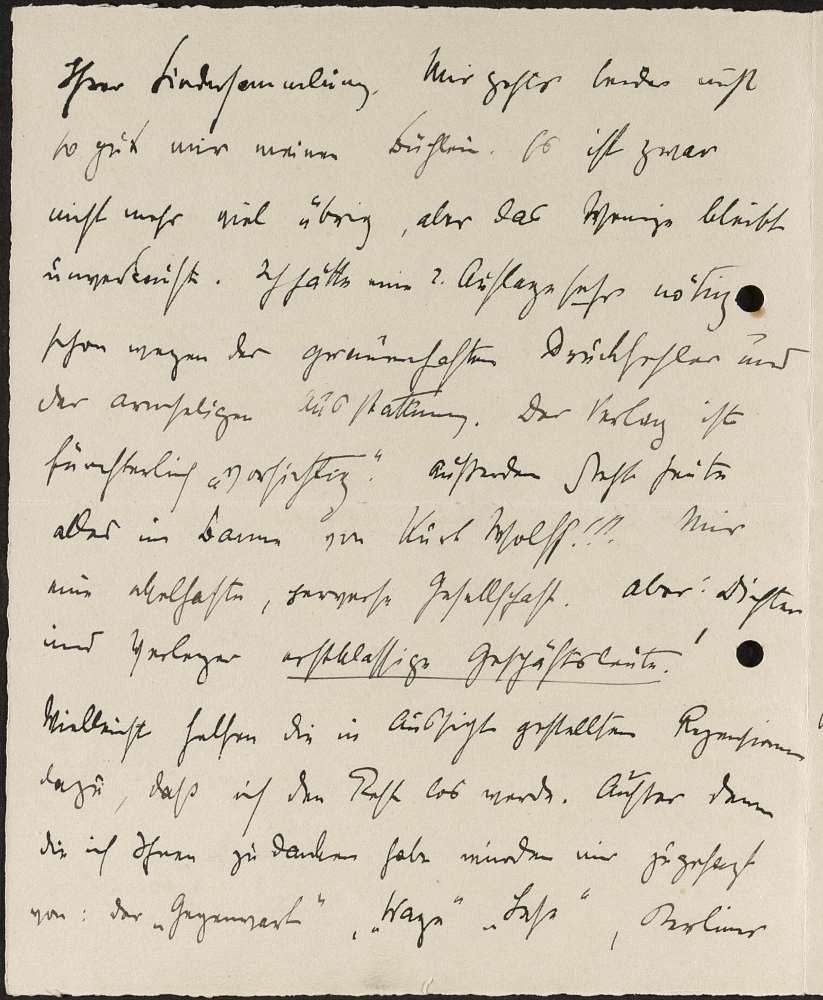 Ihrer Liedersammlung. Mir gehts leider nicht
so gut mit meinem Büchlein. Es ist zwar
nicht mehr viel übrig, aber das Wenige bleibt
unverkauft. Ich hätte eine 2. Auflage sehr nötig
schon wegen der grauenhaften Druckfehler und
der armseligen Ausstattung. Der Verlag ist
fürchterlich „vorsichtig“. Außerdem steht heute
alles im Banne von Kurt Wolff!!! Mir
eine ekelhafte, perverse Gesellschaft. Aber: Dichter
und Verleger erstklassige Geschäftsleute!
Vielleicht helfen die in Aussicht gestellten Rezensionen
dazu, daß ich den Rest los werde. Außer denen
die ich Ihnen zu danken habe wurden mir zugesagt
von: der „Gegenwart“, „Wage“ , Berliner